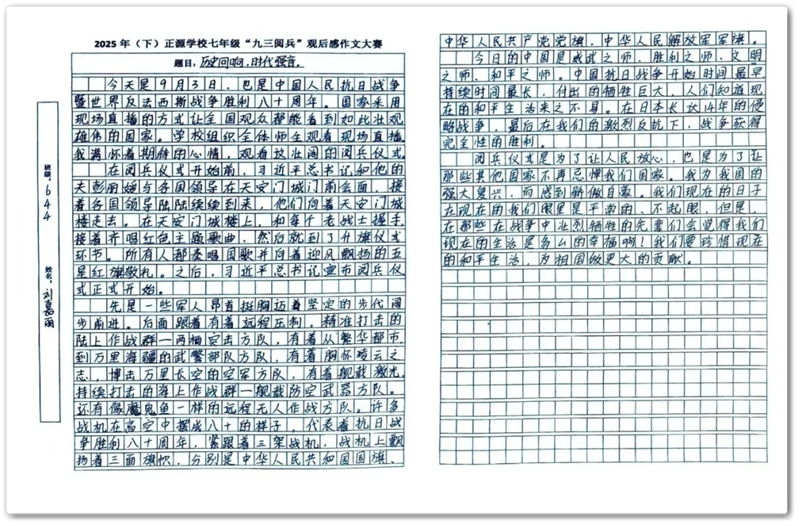 2025年（下）正源学校七年级“九三阅兵”观后感作文大赛
题目：历史回响，时代强音。
班级：644
姓名：刘嘉雨
今天是9月3日，也是中国人民抗日战争
暨世界反法西斯战争胜利八十周年。国家采用
现场直播的方式让全国观众都能看到如此壮观
雄伟的国家。学校组织全体师生观看现场直播
我满怀着期待的心情，观看这壮阔的阅兵仪式。
在阅兵仪式开始前，习近平总书记和他的
夫彭丽媛与各国领导在天安门城门前会面，接
着各国领导陆陆续续到来，他们向着天安门城
楼走去。在天安门城楼上，和每个老战士握手，
接着齐唱红色主题歌曲，然后就到了升旗仪式
环节。所有人都奏唱国歌并向着迎风飘扬的五
星红旗敬礼。之后，习近平总书记宣布阅兵仪
式正式开始。
先是一些军人昂首挺胸迈着坚定的步伐阔
步前进。后面跟着有着远程压制，精准打击的
陆上作战群一两栖突击方队，有着从繁华都市
到万里海疆的武警部队方队，有着胸怀凌云之
志，搏击万里长空的空军方队，有着舰载激光。
持续打击的海上作战群一舰载防空武器方队。
还有像魔鬼鱼一样的远程无人作战方队。许多
战机在高空中摆成八十的样子，代表着抗日战
争胜利八十周年，紧跟着三架战机，战机上飘
扬着三面旗帜，分别是中华人民共和国国旗、
中华人民共产党党旗，中华人民解放军军旗。
今日的中国是威武之师，胜利之师，文明
之师，和平之师。中国抗日战争开始时间最早
持续时间最长，付出的牺牲巨大，人们知道现
在的和平生活来之不易。在日本长达14年的侵
略战争，最后在我们的激烈反抗下，战争获得
完全性的胜利。
阅兵仪式是为了让人民放心，也是为了让
那些其他国家不再忌惮我们国家。我为我国的
强大复兴，而感到骄傲自豪。我们现在的日子
在现在的我们眼里是平常的、不起眼，但是，
在那些在战争中壮烈牺牲的先辈们会觉得我们
现在的生活是多么的幸福啊！我们要珍惜现在
的和平生活，为祖国做更大的贡献。